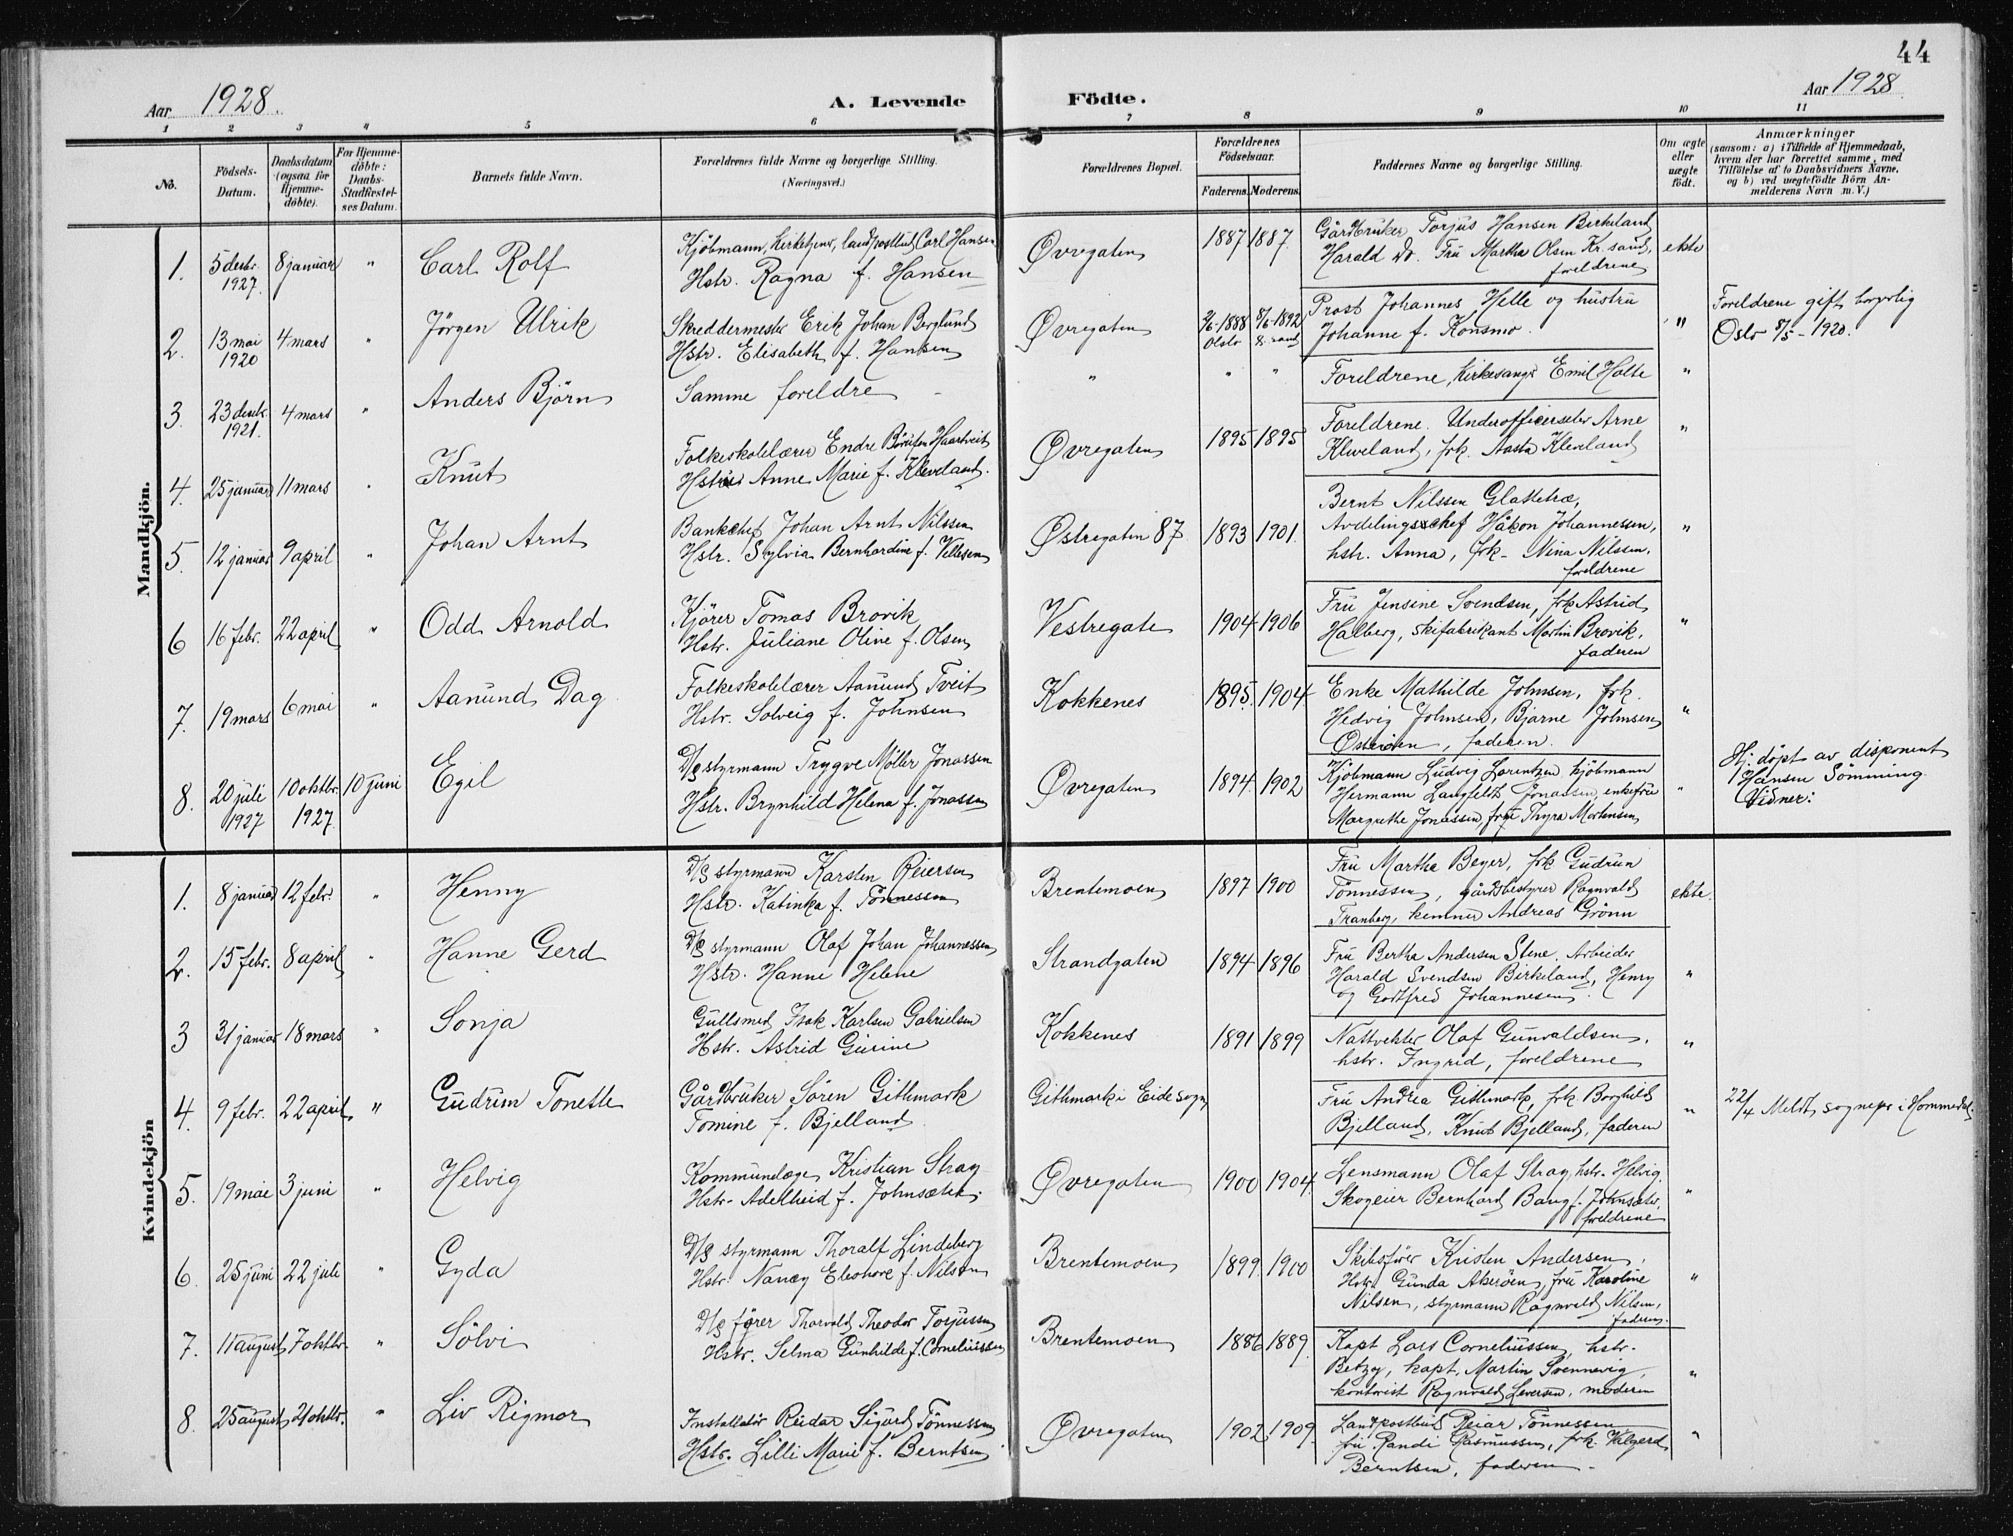 44
Aar 1928.
A. Levende Födte.
Aar 1928.
1 2 3 4 5 6 7 8 9 10 11
No.
Födsels-Datum.
Daabsdatum (ogsaa for Hjemme-døbte).
For Hjemme-døbte: Daabs-Stadfæstel-ses Datum.
Barnets fulde Navn.
Forældrenes fulde Navne og borgerlige Stilling.
(Næringsvei.)
Forældrenes Bopæl.
Forældrenes Födselsaar.
Faderens. Moderens.
Faddernes Navne og borgerlige Stilling.
Om ægte eller uægte födt.
Anmærkninger
(saasom: a) i Tilfælde af Hjemmedaab,
hvem der har forrettet samme, med
Tilföielse af to Daabsvidners Navne,
og b) ved uægtefödte Börn An-
melderens Navn m. V.)
Mandkjön.
1. 5 desbr. 1927. 8 januar " Carl Rolf
Kjöbmann, kirketjener, landpostbud Carl Hansen
Hstr. Ragna f. Hansen
Øvregaten 1887 1887
Gårdbruker Torjus Hansen Birkeland
Harald Do. Fru Martha Olsen Kr.sand,
foreldrene
ekte
2. 13 mai 1920 4 mars " Jörgen Ulrik
Skreddermester Erik Johan Berglund
Hstr. Elisabeth f. Hansen
Øvregaten 1888 Oslo 1892
Prost Johannes Helle og hustru
Johanne f. Konsmo.
"
Foreldrene gift borgerlig
Oslo 8/5 - 1920.
3 23 desbr. 1921. 4 mars " Anders Björn
Samme foreldre
" " "
Foreldrene, kirkesang. Emil Holte
"
4. 25 januar 11 mars " Knut
Folkeskolelærer Endre Haartveit
Hstru Anne Marie f. Kleveland.
Øvregaten 1895 1895
Foreldrene. Underofficerselev Arne
Kleveland, frk. Aasta Kleveland
"
5. 12 januar 9 april " Johan Arnt
Bankchef Johan Arnt Nilssen
Hstr. Sylvia Bernhardine f. Vellesen
Østregaten 87 1893 1901.
Bernt Nilssen Glattetræ,
Avdelingsschef Håkon Johannessen,
hstr. Anna, frk. Nina Nilssen.
foreldrene
"
6 16 febr. 22 april " Odd Arnold
Kjörer Tomas Brovik
Hstr. Juliane Oline f. Olsen
Vestregate 1904 1906
Fru Jensine Svendsen, frk Astrid
Halberg, skifabrikant Martin Brovik,
faderen
"
7. 19 mars 6 mai " Aanund Dag
Folkeskolelærer Aanund Tveit
Hstr. Solveig f. Johnsen
Kokkenes 1895. 1904.
Enke Mathilde Johnsen, frk.
Hedvig Johnsen, Bjarne Johnsen
faderen.
"
8. 20 juli 1927 10 oktbr. 1927 10 juni Egil
D/s styrmann Trygve Möller Jonassen
Hstr. Brynhild Helena f. Jonassen
Øvregaten 1894. 1902
Kjöbmann Ludvig Lorentzen kjöbmann
Hermann Langfeldt Jonassen, enkefru
Margrethe Jonassen, fru Thyra Mortensen
"
Hj. döpt av disponent
Hansen Sömming.
Vidner:
Kvindekjön
1. 8 januar 12 febr. " Henny
D/s styrmann Karsten Reiersen
Hstr. Katinka f. Tönnessen
Brentemoen 1897 1900
Fru Martha Beyer, frk Gudrun
Tönnessen, gårdsbestyrer Ragnvald
Tranberg, kemner Andreas Grönn
ekte.
2. 15 febr. 8 april " Hanne Gerd
D/s styrmann Olaf Johan Johannessen
Hstr. Hanne Helene
Strandgaten 1894 1896
Fru Bertha Andersen Stene. Arbeider
Harald Svendsen Birkeland, Henry
og Godtfred Johannesen.
"
3 31 januar 18 mars " Sonja
Gullsmed Isak Karlsen Gabrielsen
Hstr. Astrid Gurine
Kokkenes 1891 1899
Nattvekter Olaf Gunvaldsen,
hstr. Ingrid, foreldrene
"
4. 9 febr. 22 april " Gudrun Tonette
Gårdbruker Sören Githmark
Tomine f. Bjelland
Githmark i Eide sogn
Fru Andrea Githmark, frk Borghild
Bjelland, Knut Bjelland, faderen
"
22/4 Meldt sognepr i Hommedal.
5. 19 mai 3 juni " Helvig
Kommunelæge Kristian Stray
Hstr. Adelheid f. Johnsæter.
Øvregaten 1900 1904
Lensmann Olaf Stray, hstr. Helvig.
Skogeier Bernhard Bang f. Johnsæter,
foreldrene
"
6. 25 juni 22 juli " Gyda
D/s styrmann Thoralf Lindeberg
Hstr. Nancy Eleonore f. Nilsen
Brentemoen 1899. 1900
Skibsförer Kristen Andersen,
Hstr. Gunda Akeröen, fru Karoline
Nilsen, styrmann Ragnvald Nilsen,
faderen.
"
7. 11 august 7 oktbr. " Sölvi
D/s förer Thorvald Theodor Torjussen
Hstr. Selma Gunhilde f. Corneliussen
Brentemoen 1886 1889.
Kapt Lars Corneliussen, hstr.
Betzy, kapt. Martin Svennevig,
kontorist Ragnvald Leversen, moderen
"
8. 25 august 21 oktbr. " Liv Rigmor
Installatör Reidar Sigurd Tönnessen
Hstr. Lilli Marie f. Berntsen
Øvregaten 1902 1909.
Landpostbud Reiar Tönnessen
fru Randi Rasmussen, frk. Valgerd
Berntsen, faderen.
"